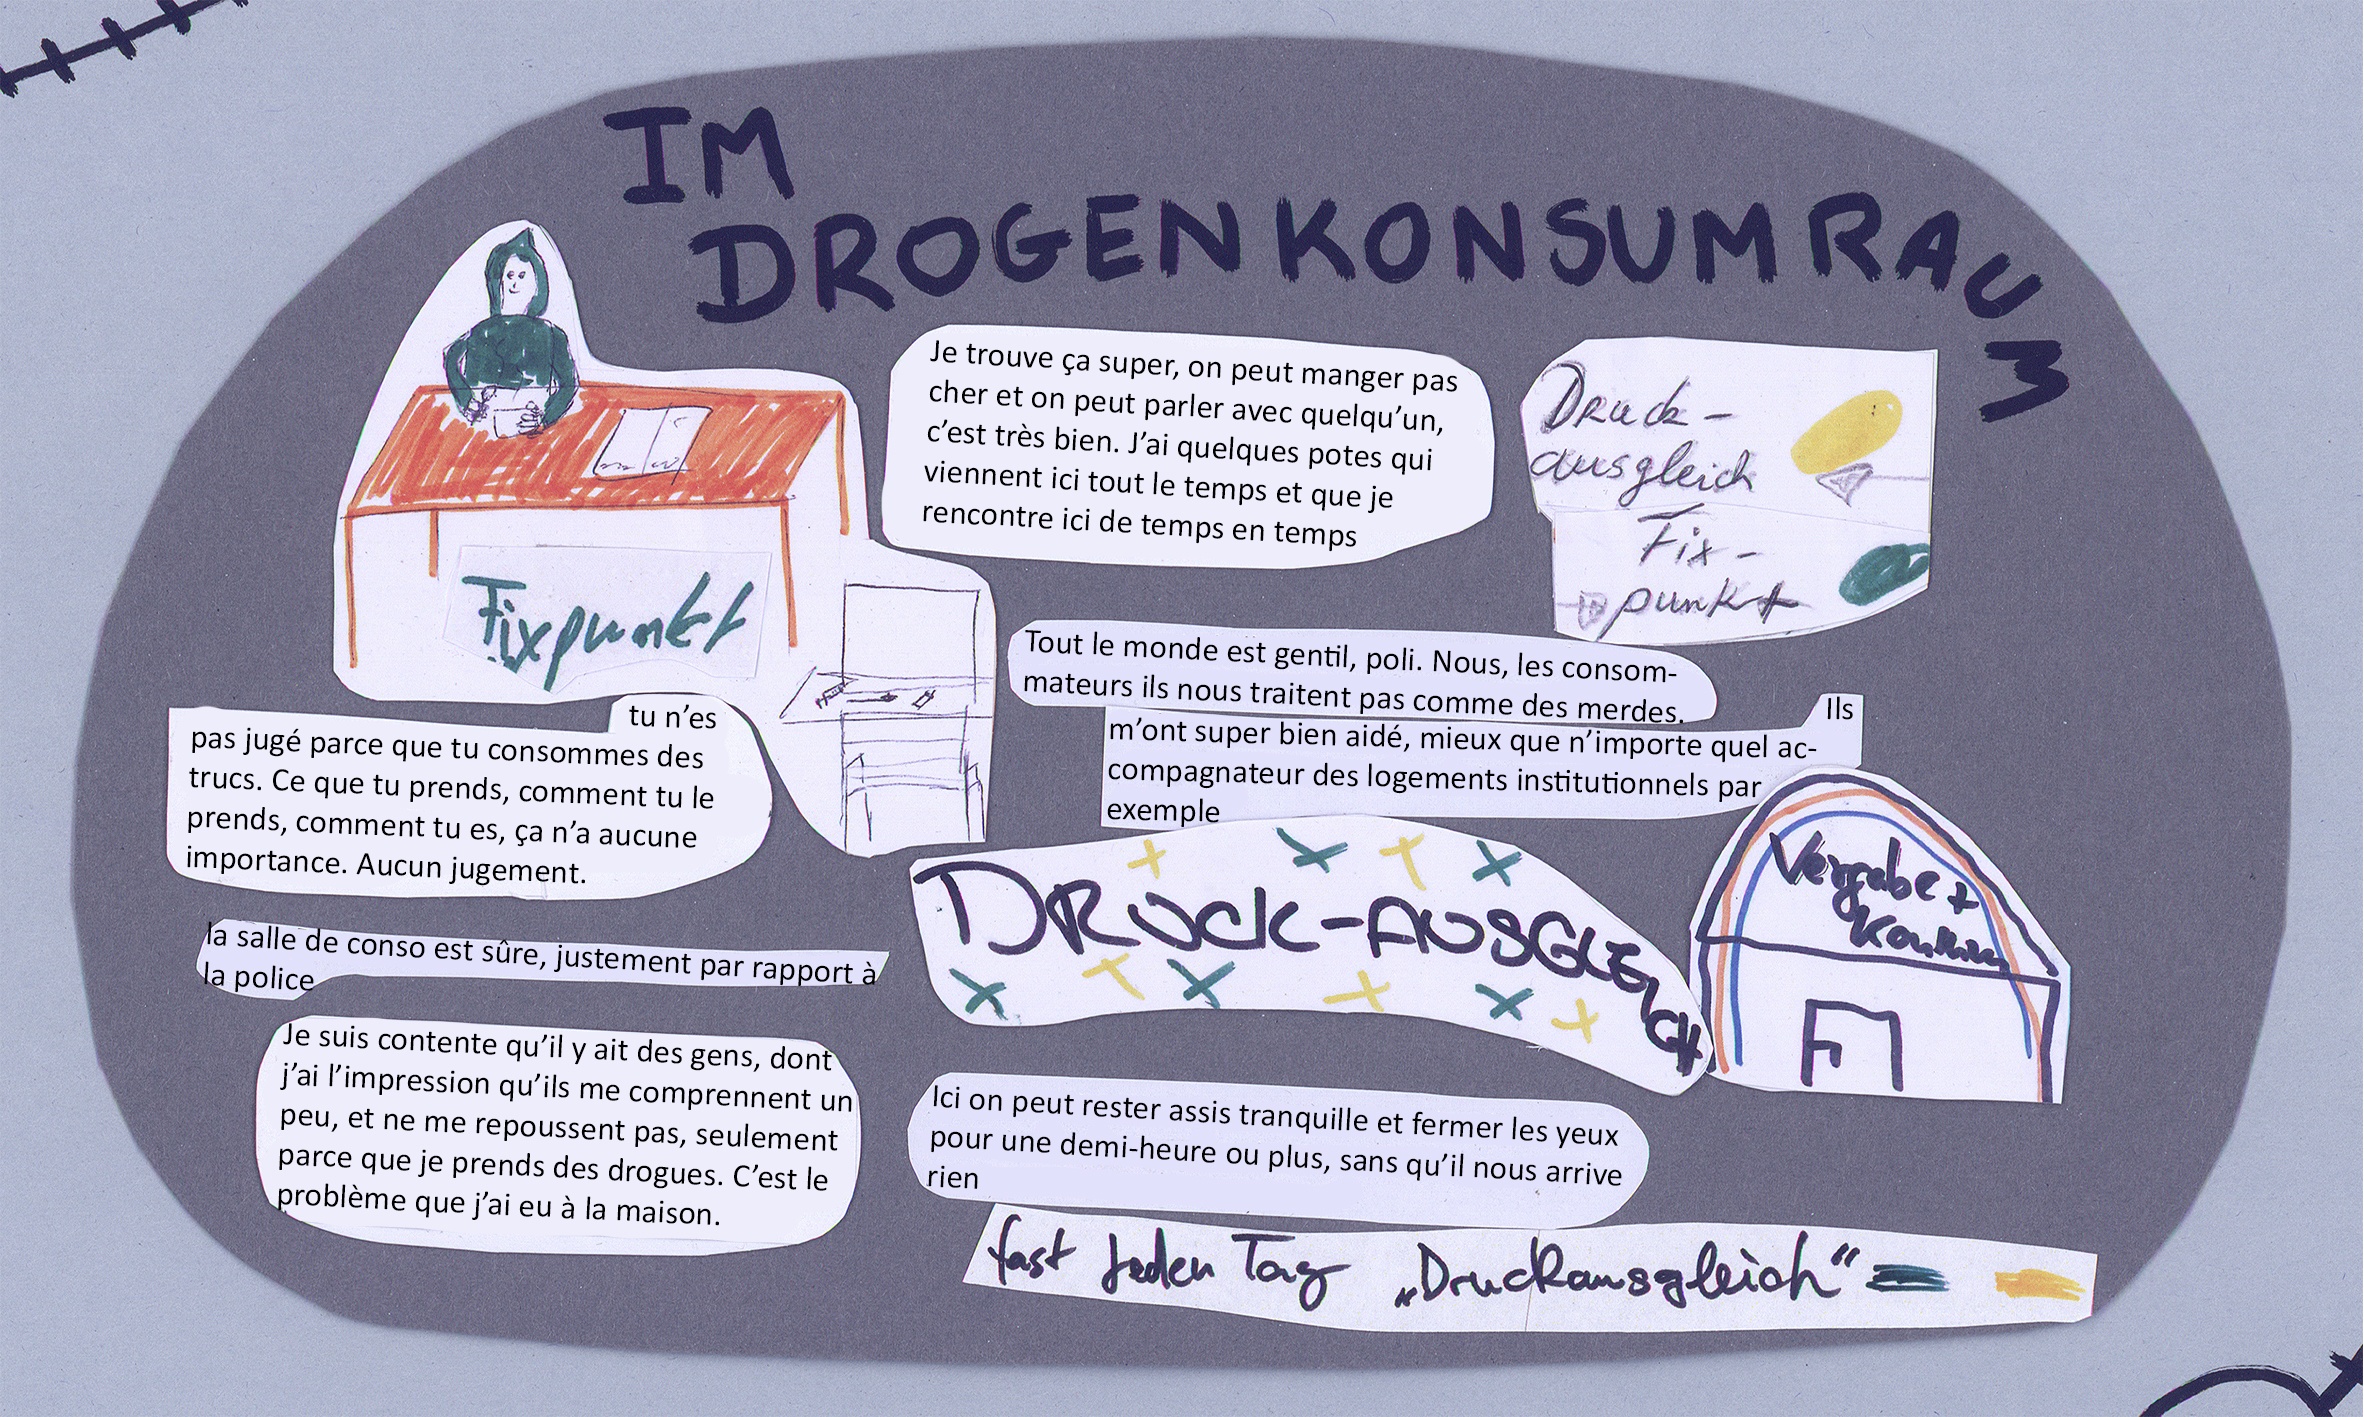 IM
DROGENKONSUMRAUM
Je trouve ça super, on peut manger pas
cher et on peut parler avec quelqu’un,
c’est très bien. J’ai quelques potes qui
viennent ici tout le temps et que je
rencontre ici de temps en temps
Druck-
ausgleich
Fix-
punkt
Fixpunkt
Tout le monde est gentil, poli. Nous, les consom-
mateurs ils nous traitent pas comme des merdes.
Ils
m’ont super bien aidé, mieux que n’importe quel ac-
compagnateur des logements institutionnels par
exemple
tu n’es
pas jugé parce que tu consommes des
trucs. Ce que tu prends, comment tu le
prends, comment tu es, ça n’a aucune
importance. Aucun jugement.
DRUCK-AUSGLEICH
Vergabe +
la salle de conso est sûre, justement par rapport à
la police
Je suis contente qu’il y ait des gens, dont
j’ai l’impression qu’ils me comprennent un
peu, et ne me repoussent pas, seulement
parce que je prends des drogues. C’est le
problème que j’ai eu à la maison.
Ici on peut rester assis tranquille et fermer les yeux
pour une demi-heure ou plus, sans qu’il nous arrive
rien
fast jeden Tag „Druckausgleich“